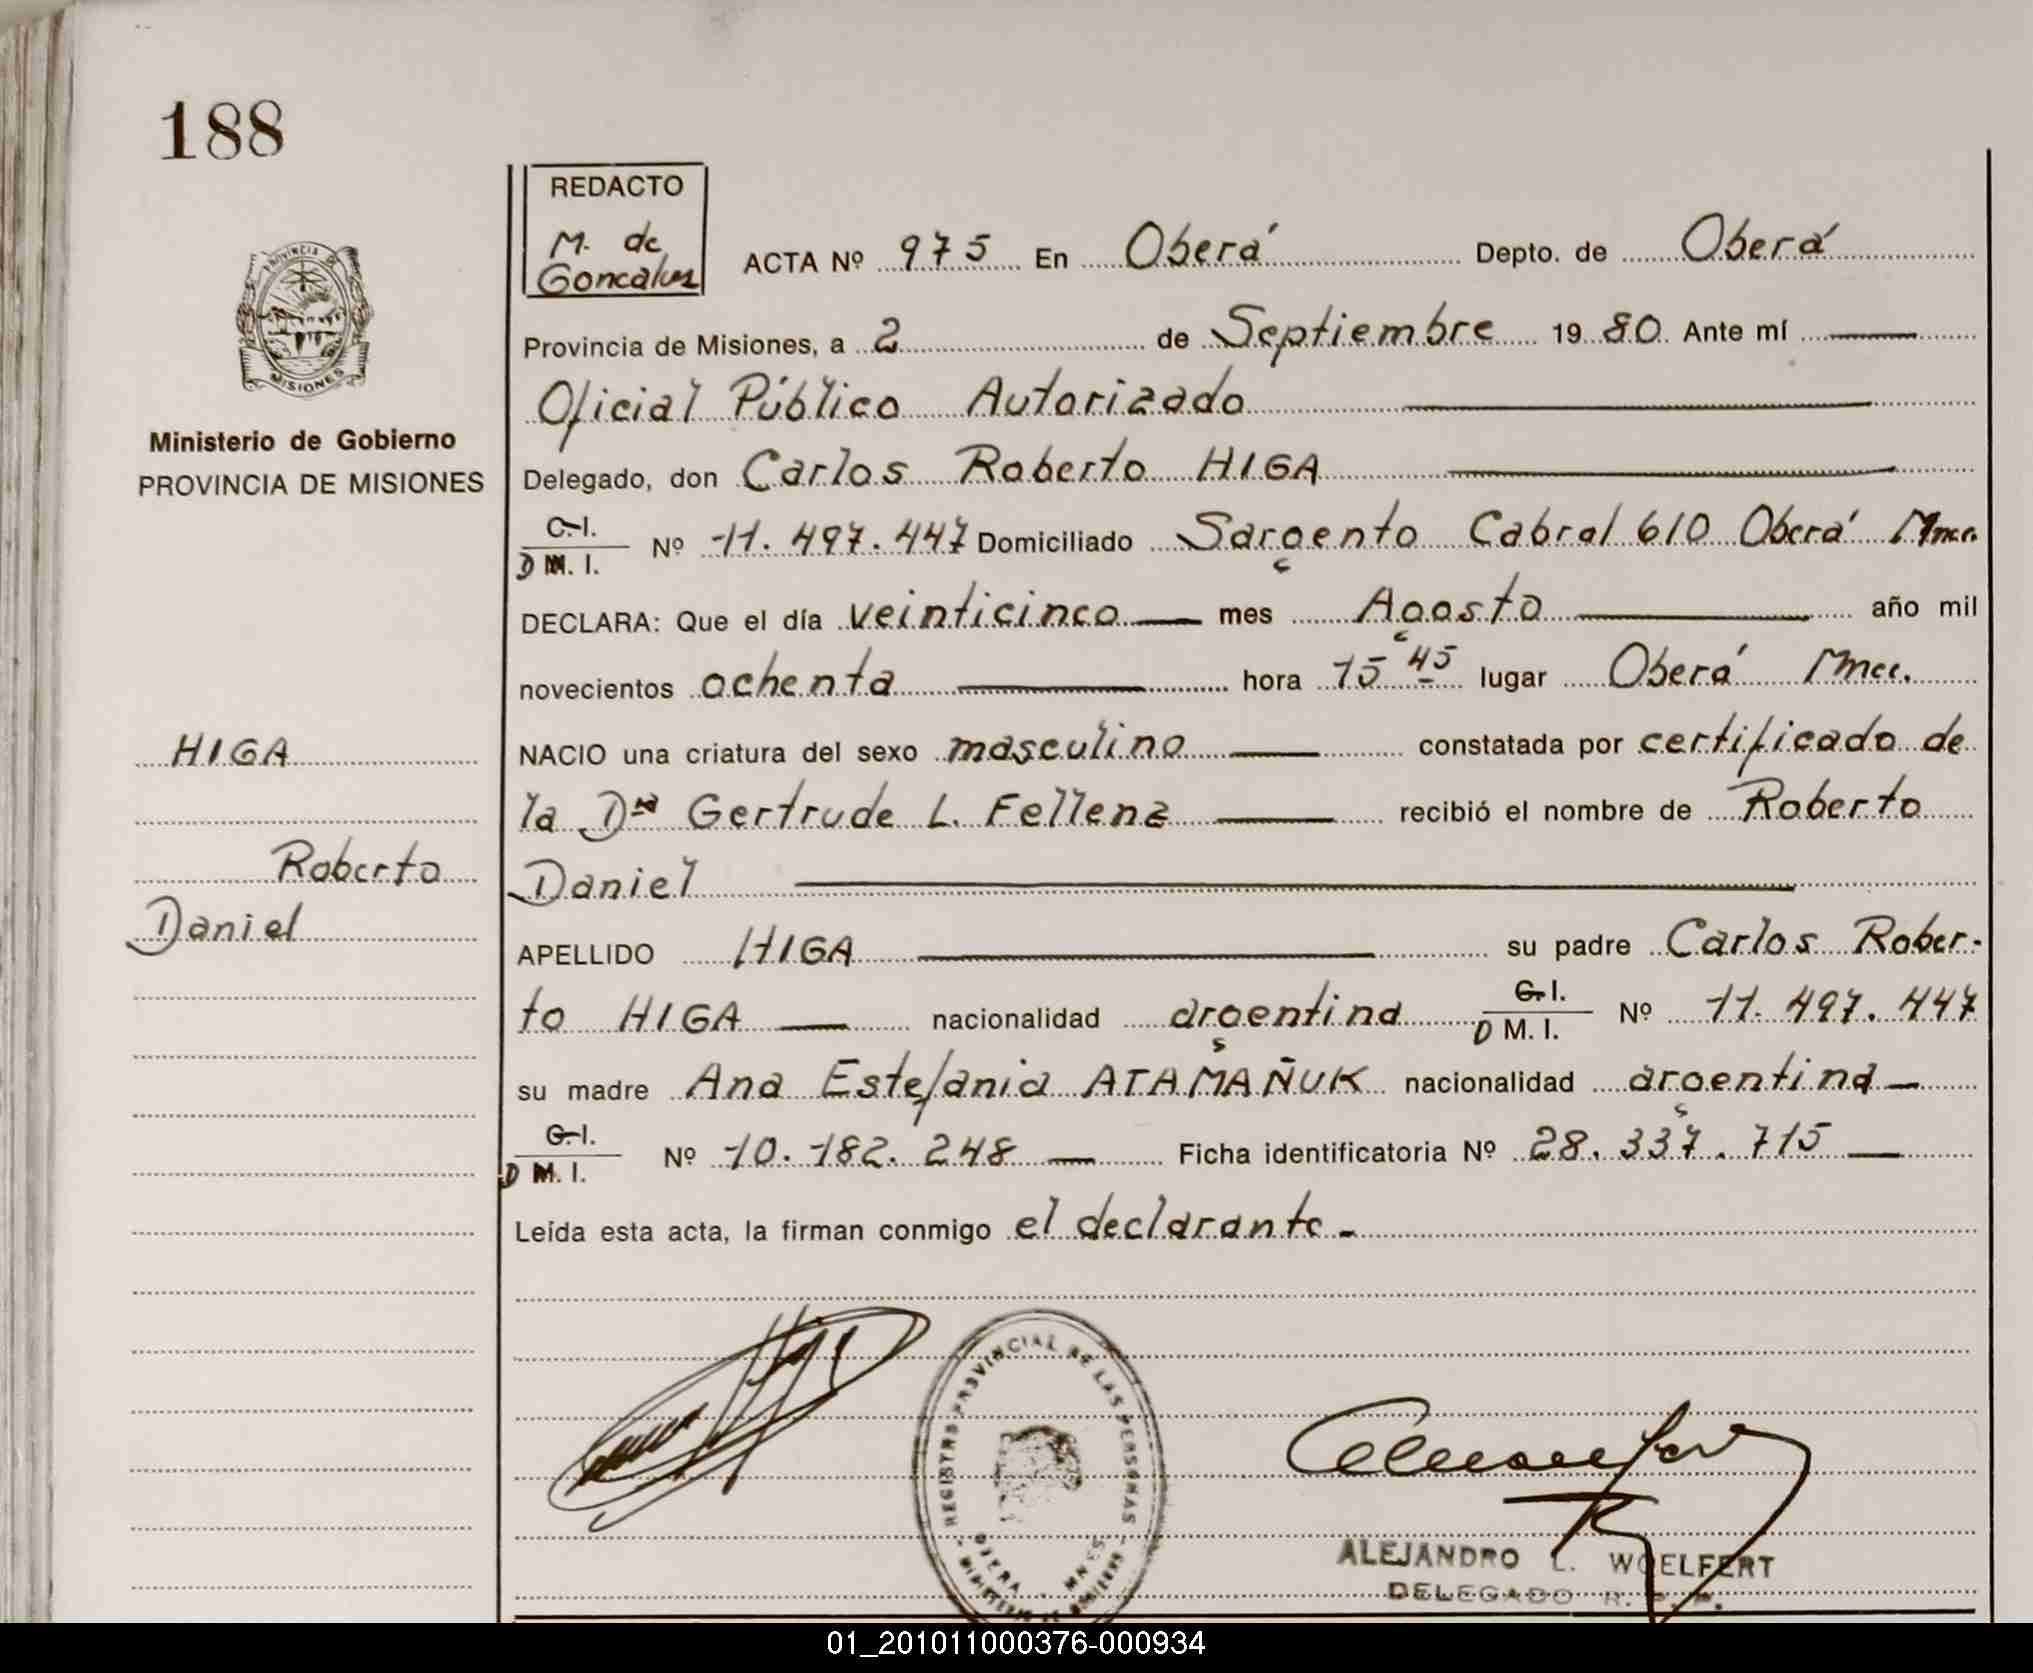 188
REDACTO
M. de
Goncalvez
ACTA Nº 975 En Oberá Depto. de Oberá
Provincia de Misiones, a 2 de Septiembre 1980. Ante mí
Oficial Público Autorizado
Delegado, don Carlos Roberto HIGA
C.I.
D M. I. Nº 11.497.447 Domiciliado Sargento Cabral 610 Oberá Mnes.
DECLARA: Que el día veinticinco mes Agosto año mil
novecientos ochenta hora 15 45 lugar Oberá Mnes.
NACIO una criatura del sexo masculino constatada por certificado de
la Dra Gertrude L. Fellenz recibió el nombre de Roberto
Daniel
APELLIDO HIGA su padre Carlos Rober-
to HIGA nacionalidad argentina C.I.
D M. I. Nº 11.497.447
su madre Ana Estefania ATAMAÑUK nacionalidad argentina
C.I.
D M. I. Nº 10.182.248 Ficha identificatoria Nº 28.337.715
Leída esta acta, la firman conmigo el declarante.-
PROVINCIA DE
MISIONES
Ministerio de Gobierno
PROVINCIA DE MISIONES
HIGA
Roberto
Daniel
REGISTRO PROVINCIAL DE LAS PERSONAS
OBERA - MNES.
MINISTERIO DE GOBIERNO
ALEJANDRO L. WOELFERT
DELEGADO R. P. P.
01_201011000376-000934